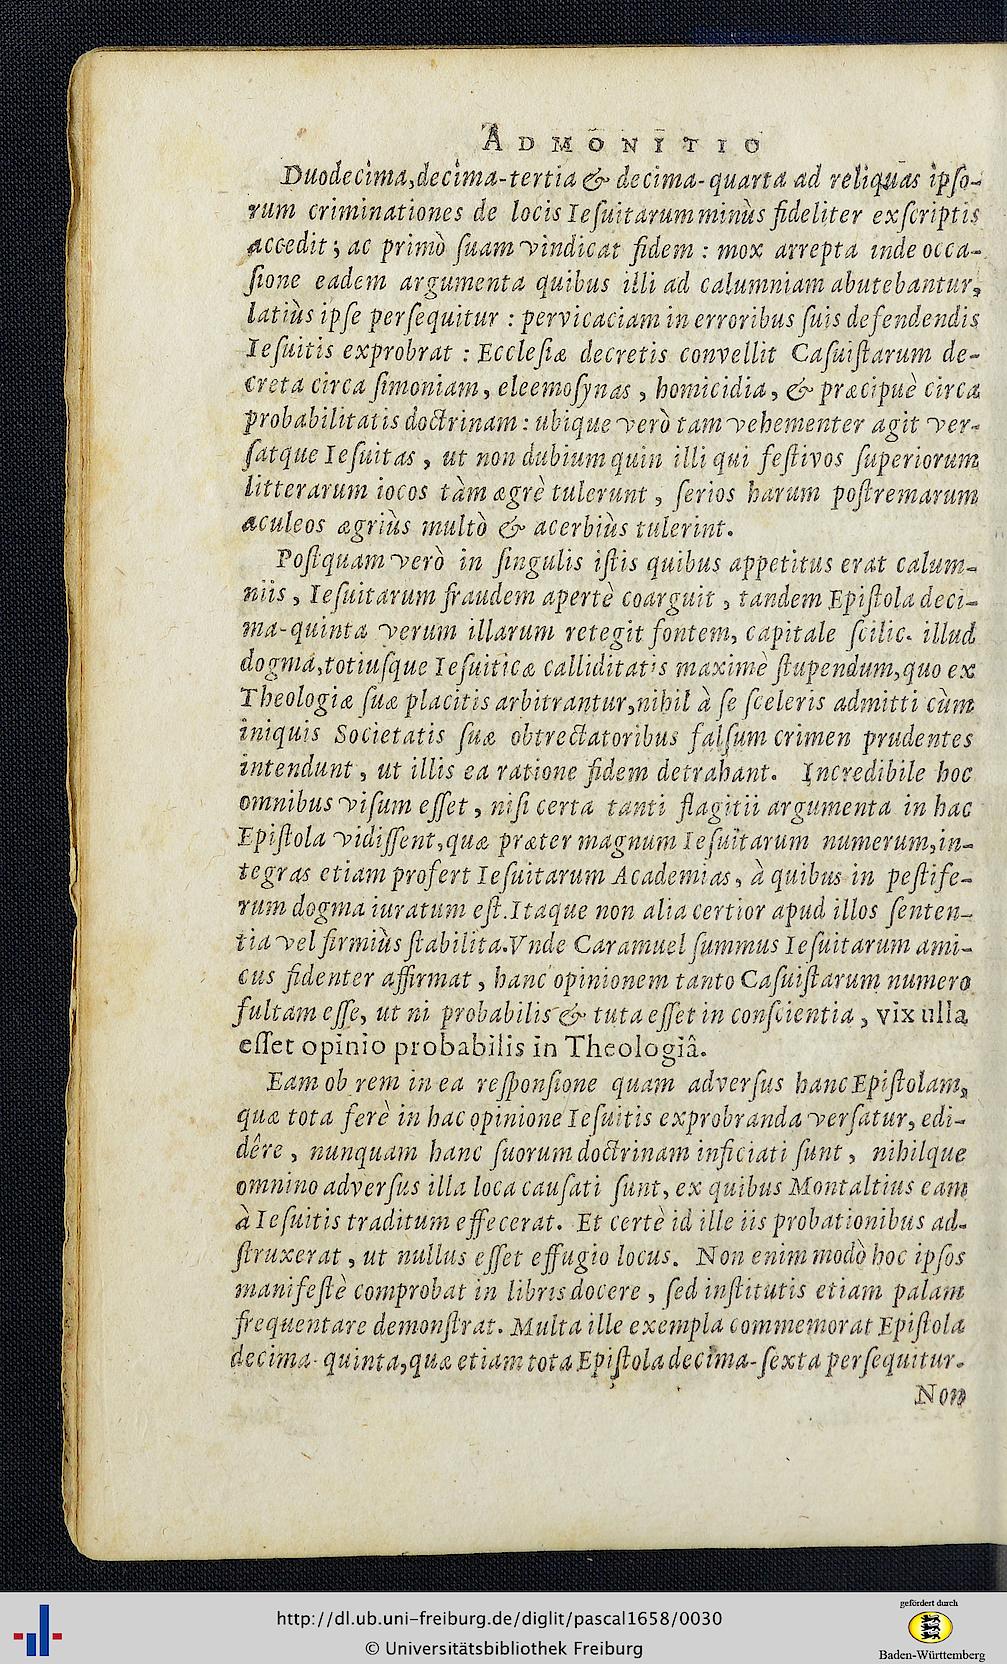 ADMONITIO
Duodecima, decima-tertia & decima-quarta ad reliquas ipſo-
rum criminationes de locis Ieſuitarum minùs fideliter exſcriptis
accedit; ac primò ſuam vindicat fidem : mox arrepta inde occa-
ſione eadem argumenta quibus illi ad calumniam abutebantur,
latiùs ipſe perſequitur : pervicaciam in erroribus ſuis defendendis
Ieſuitis exprobrat : Eccleſiæ decretis convellit Caſuiſtarum de-
creta circa ſimoniam, eleemoſynas, homicidia, & præcipuè circa
probabilitatis doctrinam : ubique verò tam vehementer agit ver-
ſatque Ieſuitas, ut non dubium quin illi qui feſtivos ſuperiorum
litterarum iocos tàm ægrè tulerunt, ſerios harum poſtremarum
aculeos ægriùs multò & acerbiùs tulerint.
Poſtquam verò in ſingulis iſtis quibus appetitus erat calum-
niis, Ieſuitarum fraudem apertè coarguit, tandem Epiſtola deci-
ma-quinta verum illarum retegit fontem, capitale ſcilic. illud
dogma, totiuſque Ieſuiticæ calliditatis maximè ſtupendum, quo ex
Theologiæ ſuæ placitis arbitrantur, nihil à ſe ſceleris admitti cùm
iniquis Societatis ſuæ obtrectatoribus falſum crimen prudentes
intendunt, ut illis ea ratione fidem detrahant. Incredibile hoc
omnibus viſum eſſet, niſi certa tanti flagitii argumenta in hac
Epiſtola vidiſſent, quæ præter magnum Ieſuitarum numerum, in-
tegras etiam profert Ieſuitarum Academias, à quibus in peſtife-
rum dogma iuratum eſt. Itaque non alia certior apud illos ſenten-
tia vel firmiùs ſtabilita. Vnde Caramuel ſummus Ieſuitarum ami-
cus fidenter affirmat, hanc opinionem tanto Caſuiſtarum numero
fultam eſſe, ut ni probabilis & tuta eſſet in conſcientia, vix ulla
eſſet opinio probabilis in Theologiâ.
Eam ob rem in ea reſponſione quam adverſus hanc Epiſtolam,
quæ tota ferè in hac opinione Ieſuitis exprobranda verſatur, edi-
dêre, nunquam hanc ſuorum doctrinam inficiati ſunt, nihilque
omnino adverſus illa loca cauſati ſunt, ex quibus Montaltius eam
à Ieſuitis traditum effecerat. Et certè id ille iis probationibus ad-
ſtruxerat, ut nullus eſſet effugio locus. Non enim modò hoc ipſos
manifeſtè comprobat in libris docere, ſed inſtitutis etiam palam
frequentare demonſtrat. Multa ille exempla commemorat Epiſtola
decima-quinta, quæ etiam tota Epiſtola decima-ſexta perſequitur.
Non
http://dl.ub.uni-freiburg.de/diglit/pascal1658/0030
© Universitätsbibliothek Freiburg
gefördert durch
Baden-Württemberg